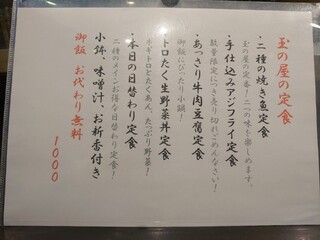 玉の屋の定食
・二種の焼き魚定食
玉の屋の定番!二つの味を楽しめます。
・手仕込みアジフライ定食
数量限定につき売り切れごめんなさい!
・あっさり牛肉豆腐定食
御飯にぴったり小鍋!
・トロたく生野菜丼定食
ネギトロとたくあん、たっぷり野菜!
・本日の日替わり定食
二種のメインがお得な日替わり定食!
小鉢、味噌汁、お新香付き
御飯 お代わり無料
1000